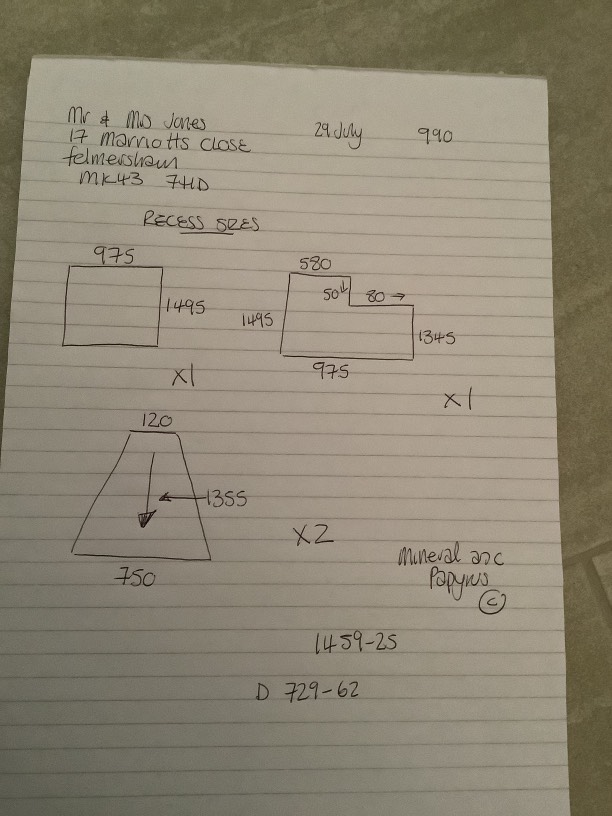 Mr & Ms Jones
29 July
990
17 Marriotts Close
Felmersham
MK43 7HD
RECESS SIZES
975
1495
x1
580
50
80
1495
1345
975
x1
120
1355
750
x2
Mineral
Papyrus
C
1459-25
D 729-62